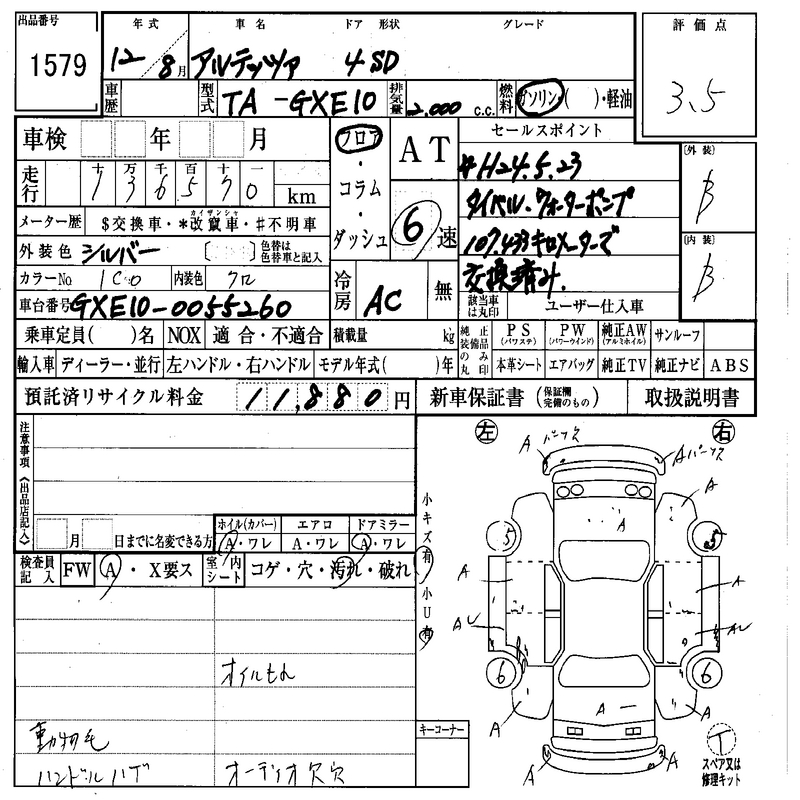 出品番号 年式 車名 ドア 形状 グレード 評価点
1579 12/8月 アルテッツァ 4 SD 3.5
車歴 型式 TA-GXE10 排気量 2,000 c.c. 燃料 ガソリン・( )・軽油
車検 年 月 フロア・コラム・ダッシュ AT 6速 セールスポイント 〔外装〕 B
走行 十万千百十一 136570 km #H24.5.23
メーター歴 $交換車・*改竄車・#不明車 カイザンシャ タイベル・ウォーターポンプ
外装色 シルバー 〔 〕 色替は色替車と記入 107,433キロメーターで 〔内装〕 B
カラーNo 1C0 内装色 クロ 冷房 AC 無 交換済み.
車台番号 GXE10-0055260 該当車は丸印 ユーザー仕入車
乗車定員( )名 NOX 適合・不適合 積載量 kg 純正装備品のみ丸印 PS (パワステ) PW (パワーウインド) 純正AW (アルミホイル) サンルーフ
輸入車 ディーラー・並行 左ハンドル・右ハンドル モデル年式( )年 本革シート エアバッグ 純正TV 純正ナビ ABS
預託済リサイクル料金 11,880 円 新車保証書 (保証欄完備のもの) 取扱説明書
注意事項《出品店記入》 左 右
A バンクス A バンクス
A
A
小キズ 有
5 5
月 日までに名変できる方 ホイル(カバー) エアロ ドアミラー
A・ワレ A・ワレ A・ワレ
検査員記入 FW A・X要ス 室内シート コゲ・穴・汚れ・破れ
A A
小U 有
AU AU
オイルもれ 6 6
A A A
動物毛 キーコーナー T
ハンドルハゲ オーディオ欠 穴 A A スペア又は修理キット